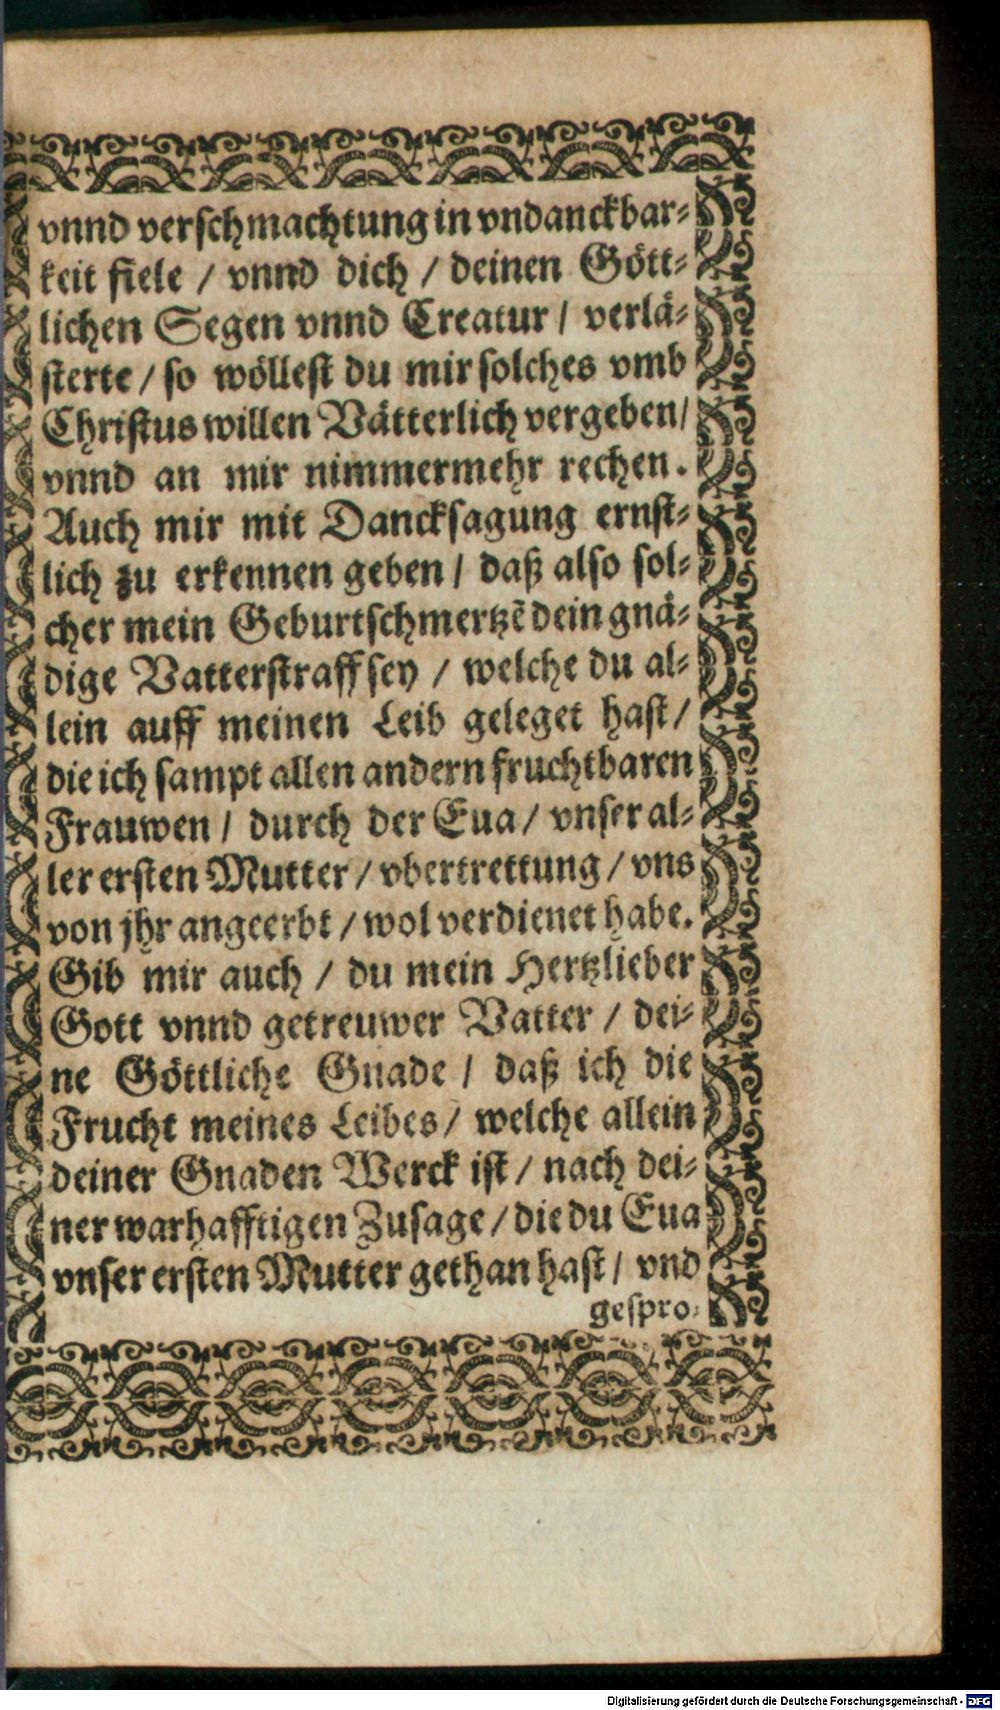 vnnd verschmachtung in vndanckbar-
keit fiele / vnnd dich / deinen Gött-
lichen Segen vnnd Creatur / verlä-
sterte / so wöllest du mir solches vmb
Christus willen Vätterlich vergeben /
vnnd an mir nimmermehr rechen.
Auch mir mit Dancksagung ernst-
lich zu erkennen geben / daß also sol-
cher mein Geburtschmertzẽ dein gnä-
dige Vatterstraff sey / welche du al-
lein auff meinen Leib geleget hast /
die ich sampt allen andern fruchtbaren
Frauwen / durch der Eua / vnser al-
ler ersten Mutter / vbertrettung / vns
von jhr angeerbt / wol verdienet habe.
Gib mir auch / du mein Hertzlieber
Gott vnnd getreuwer Vatter / dei-
ne Göttliche Gnade / daß ich die
Frucht meines Leibes / welche allein
deiner Gnaden Werck ist / nach dei-
ner warhafftigen Zusage / die du Eua
vnser ersten Mutter gethan hast / vnd
gespro-
Digitalisierung gefördert durch die Deutsche Forschungsgemeinschaft - DFG